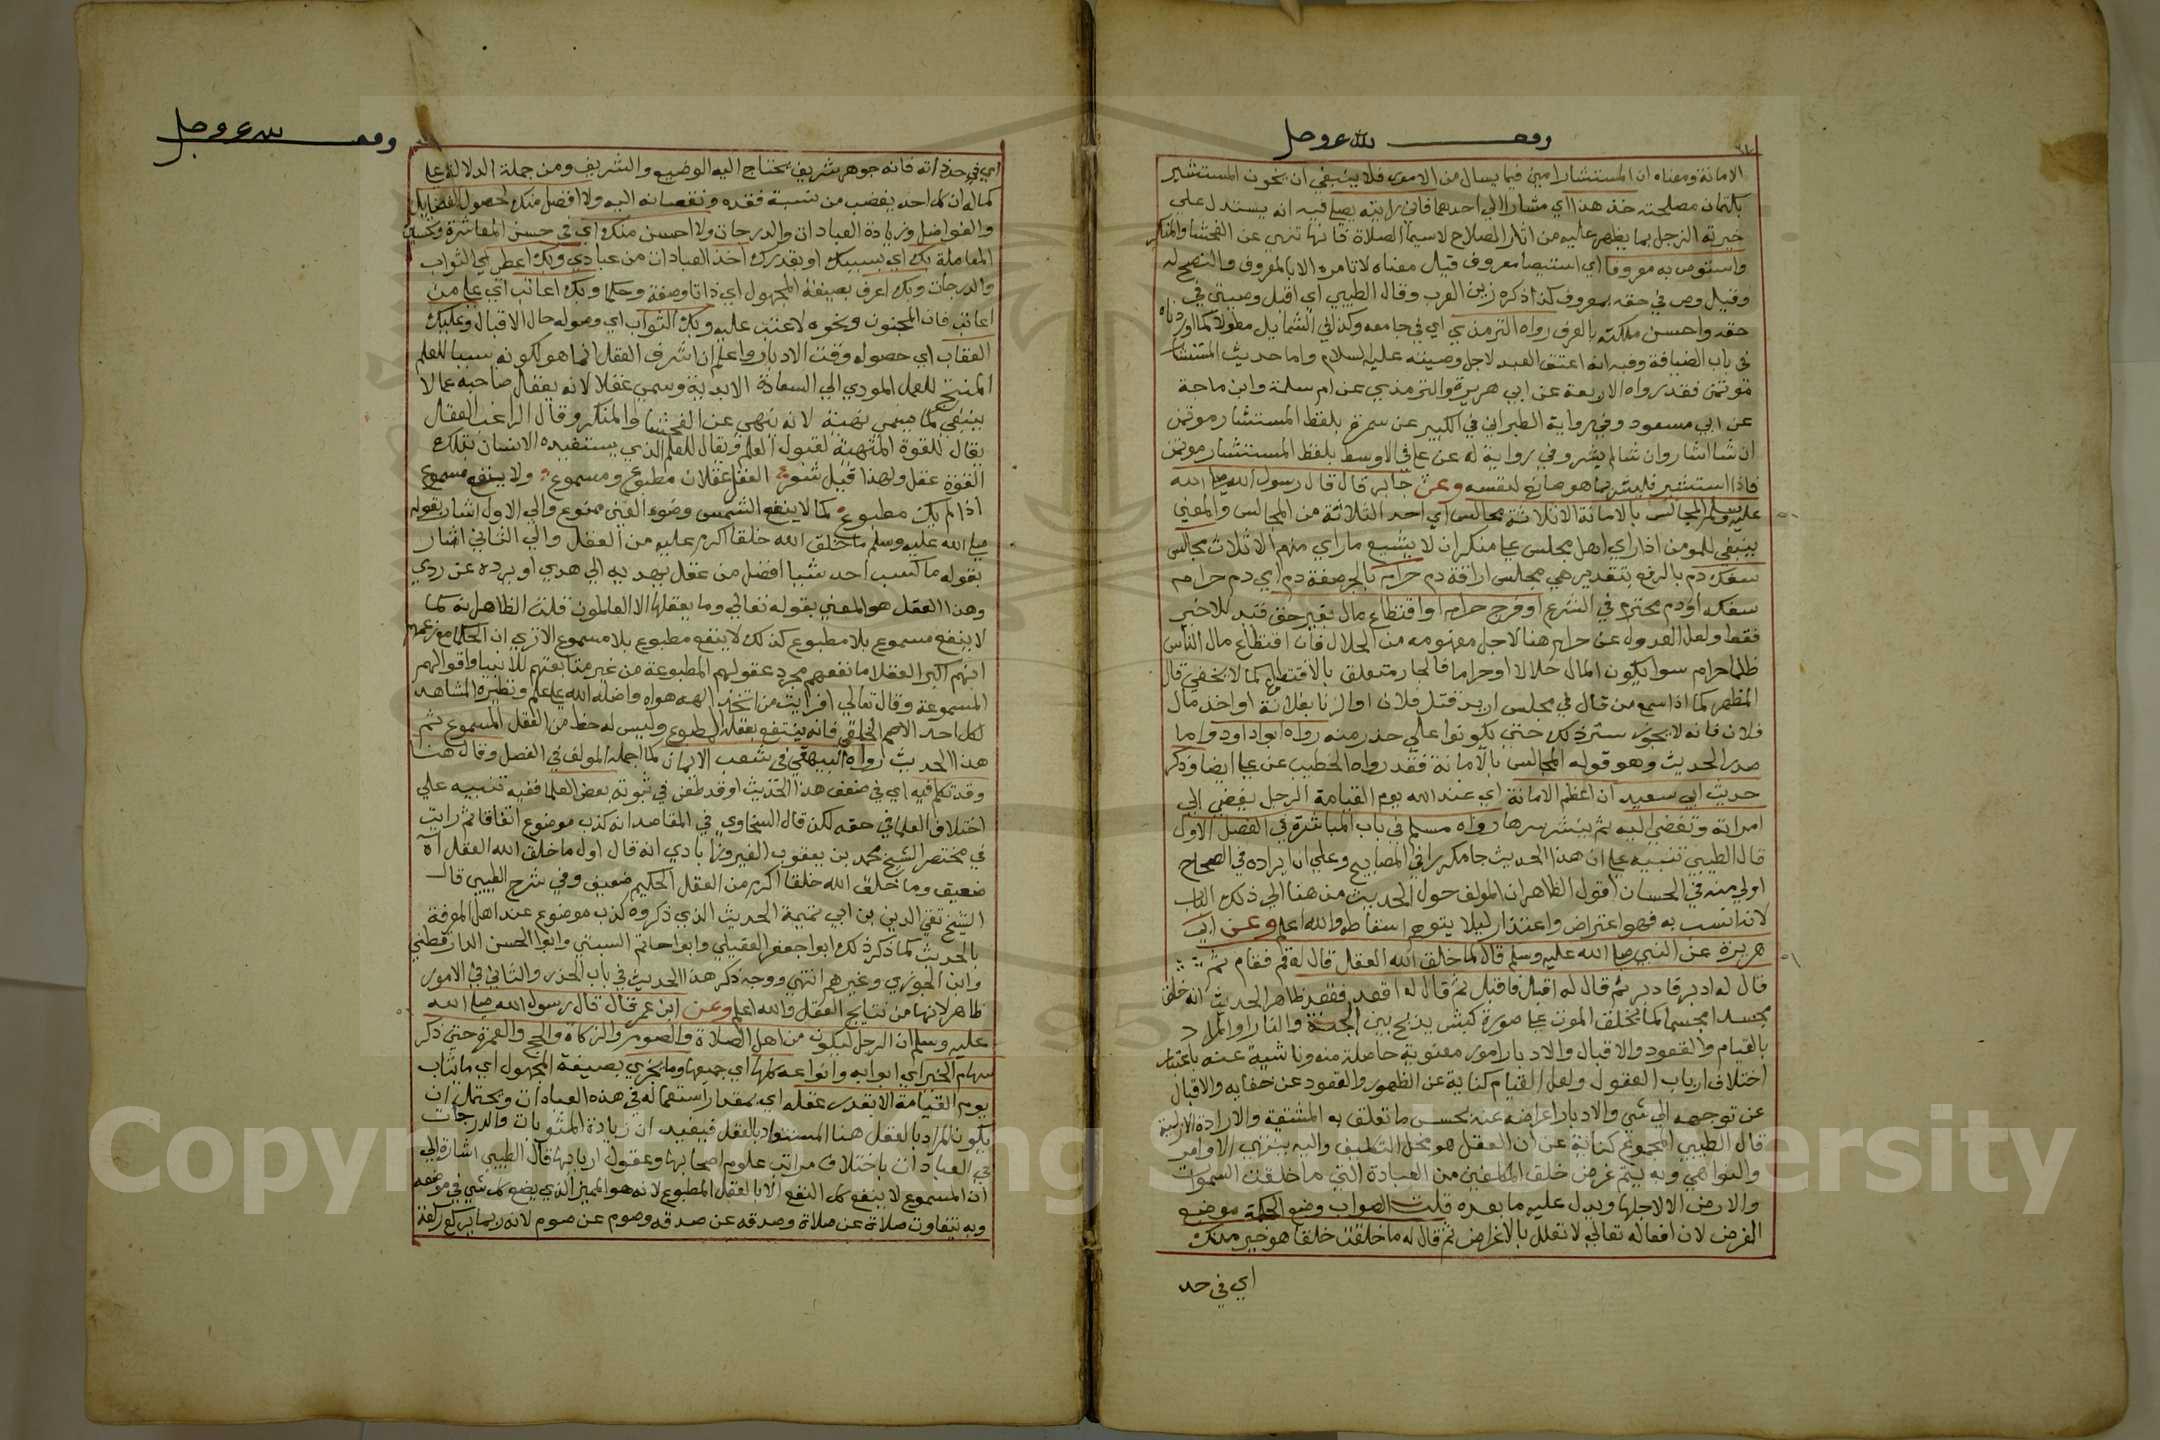 وقف لله عز وجل
الامانة ومعناه ان المستشار امين فيما يسال من الامور فلا ينبغي ان يخون المستشير
بكتمان مصلحته خذ هذا اي مشارا الي احدهما فاني رايته يصلي فيه انه يستدل علي
خيرية الرجل بما يظهر عليه من اثار الصلاح لاسيما الصلاة فانها تنهي عن الفحشا والمنكر
واستوص به معروفا اي استيصا معروف قيل معناه لا تامره الا بالمعروف والنصح له
وقيل وص في حقه بمعروف كذا ذكره زين العرب وقال الطيبي اي اقبل وصيتي في
حقه واحسن ملكته بالعرف رواه الترمذي اي في جامعه وكذا في الشمايل مطولا كما اوردناه
في باب الضيافة وفيه انه اعتق العبد لاجل وصيته عليه السلام واما حديث المستشار
موتمن فقد رواه الاربعة عن ابي هريرة والترمذي عن ام سلمة وابن ماجة
عن ابي مسعود وفي رواية الطبراني في الكبير عن سمرة بلفظ المستشار موتمن
ان شا اشار وان شا لم يشر وفي رواية له عن علي في الاوسط بلفظ المستشار موتمن
فاذا استشير فليشر بما هو صانع لنفسه وعن جابر قال قال رسول الله صلي الله
عليه وسلم المجالس بالامانة الا ثلاثة مجالس اي احد الثلاثة من المجالس والمعني
ينبغي للمومن اذا راي اهل مجلس علي منكر ان لا يشيع ما راي منهم الا ثلاث مجالس
سفك دم بالرفع بتقدير هي مجلس اراقة دم حرام بالجر صفة دم اي دم حرام
سفكه او دم محترم في الشرع او فرج حرام او اقتطاع مال بغير حق قيد للاخير
فقط ولعل العدول عن حرام هنا لاجل مفهومه من الحلال فان اقتطاع مال الناس
ظلما حرام سوا يكون المال حلالا او حراما فالجار متعلق بالاقتطاع كما لا يخفي قال
المظهر كما اذا سمع من قال في مجلس اريد قتل فلان او الزنا بفلانة او اخذ مال
فلان فانه لا يجوز ستر ذلك حتي يكونوا علي حذر منه رواه ابو داود واما
صدر الحديث وهو قوله المجالس بالامانة فقد رواه الخطيب عن علي ايضا وذكر
حديث ابي سعيد ان اعظم الامانة اي عند الله يوم القيامة الرجل يفضي الي
امراته وتفضي اليه ثم ينشر سرها رواه مسلم في باب المباشرة في الفصل الاول
قال الطيبي تنبيه علي ان هذا الحديث جا مكررا في المصابيح وعلي ان ايراده في الصحاح
اولي منه في الحسان اقول الظاهر ان المولف حول الحديث من هنا الي ذلك الباب
لانه انسب به فهو اعتراض واعتذار ليلا يتوهم اسقاطه والله اعلم وعن ابي
هريرة عن النبي صلي الله عليه وسلم قال لما خلق الله العقل قال له قم فقام ثم
قال له ادبر فادبر ثم قال له اقبل فاقبل ثم قال له اقعد فقعد ظاهر الحديث انه خلق
مجسدا مجسما كما يخلق الموت علي صورة كبش يذبح بين الجنة والنار او المراد
بالقيام والقعود والاقبال والادبار امور معنوية حاصلة منه وناشية عنه باعتبار
اختلاف ارباب العقول ولعل القيام كناية عن الظهور والقعود عن خفايه والاقبال
عن توجهه الي شي والادبار اعراضه عنه بحسب ما تعلق به المشيية والارادة الازلية
قال الطيبي المجموع كناية عن ان العقل هو محل التكليف واليه ينتهي الاوامر
والنواهي وبه يتم غرض خلق المكلفين من العبادة التي ما خلقت السموات
والارض الا لاجلها ويدل عليه ما بعده قلت الصواب وضع الحكمة موضع
الغرض لان افعاله تعالي لا تعلل بالاغراض ثم قال له ما خلقت خلقا هو خير منك
اي في حد
وقف لله عز وجل
اي في حد ذاته فانه جوهر شريف يحتاج اليه الوضيع والشريف ومن جملة الدلالة علي
كماله ان كل احد يغضب من نسبة فقده ونقصانه اليه ولا افضل منك لحصول الفضايل
والفواضل وزيادة العبادات والدرجات ولا احسن منك اي في حسن المعاشرة وتحسين
المعاملة بك اي بسببك او بقدرك اخذ العبادات من عبادي وبك اعطي اي الثواب
والدرجات وبك اعرف بصيغة المجهول اي ذاتا وصفة وحكما وبك اعاتب اي علي من
اعاتب فان المجنون ونحوه لا عتب عليه وبك الثواب اي وصوله حال الاقبال وعليك
العقاب اي حصوله وقت الادبار واعلم ان شرف العقل انما هو لكونه سببا للعلم
المنتج للعمل المودي الي السعادة الابدية وسمي عقلا لانه يعقل صاحبه عما لا
ينبغي كما سمي نهية لانه ينهي عن الفحشا والمنكر وقال الراغب العقل
يقال للقوة المتهيية لقبول العلم ويقال للعلم الذي يستفيده الانسان بتلك
القوة عقل ولهذا قيل شعر العقل عقلان مطبوع ومسموع ولا ينفع مسموع
اذا لم يك مطبوع كما لا ينفع الشمس وضوء العين ممنوع والي الاول اشار بقوله
صلي الله عليه وسلم ما خلق الله خلقا اكرم عليه من العقل والي الثاني اشار
بقوله ما كسب احد شيا افضل من عقل يهديه الي هدي او يرده عن ردي
وهذا العقل هو المعني بقوله تعالي وما يعقلها الا العالمون قلت الظاهر انه كما
لا ينفع مسموع بلا مطبوع كذلك لا ينفع مطبوع بلا مسموع الا تري ان الحكما مع زعمهم
انهم اكبر العقلا ما نفعهم مجرد عقولهم المطبوعة من غير متابعتهم للانبيا واقوالهم
المسموعة وقال تعالي افرايت من اتخذ الهه هواه واضله الله علي علم ونظيره المشاهد
لكل احد الاصم الخلقي فانه ينتفع بعقله المطبوع وليس له حظ من العقل المسموع ثم
هذا الحديث رواه البيهقي في شعب الايمان كما اجمله المولف في الفصل وقال هنا
وقد تكلم فيه اي في ضعف هذا الحديث او قد طعن في ثبوته بعض العلما ففيه تنبيه علي
اختلاف العلما في حقه لكن قال السخاوي في المقاصد انه كذب موضوع اتفاقا ثم رايت
في مختصر الشيخ محمد بن يعقوب الفيروزابادي انه قال اول ما خلق الله العقل اه
ضعيف وما خلق الله خلقا اكرم من العقل الحكيم ضعيف وفي شرح الطيبي قال
الشيخ تقي الدين بن ابي تيمية الحديث الذي ذكروه كذب موضوع عند اهل المعرفة
بالحديث كما ذكر ذلك ابو جعفر العقيلي وابو حاتم السبتي وابو الحسن الدارقطني
وابن الجوزي وغيرهم انتهي ووجه ذكر هذا الحديث في باب الحذر والتاني في الامور
ظاهر لانها من نتايج العقل والله اعلم وعن ابن عمر قال قال رسول الله صلي الله
عليه وسلم ان الرجل ليكون من اهل الصلاة والصوم والزكاة والحج والعمرة حتي ذكر
سهام الخير اي ابوابه وانواعه كلها اي جميعها وما يجزي بصيغة المجهول اي ما يثاب
يوم القيامة الا بقدر عقله اي بمقدار استعماله في هذه العبادات ويحتمل ان
يكون المراد بالعقل هنا المستفاد بالعقل فيفيد ان زيادة المثوبات والدرجات
في العبادات باختلاف مراتب علوم اصحابها وعقول اربابها قال الطيبي اشارة الي
ان المسموع لا ينفع كل النفع الا بالعقل المطبوع لانه هو المميز الذي يضع كل شي في موضعه
وبه تتفاوت صلاة عن صلاة وصدقه عن صدقه وصوم عن صوم لانه ربما يركع ركعة